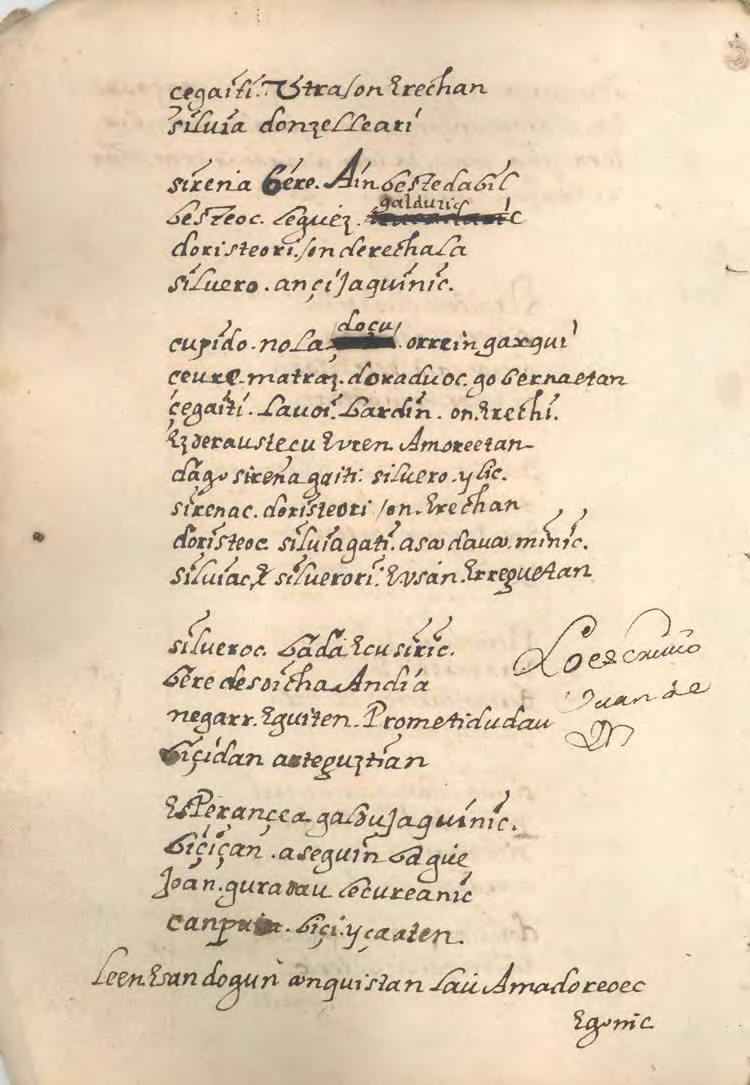 cegaiti. Vtra, on Erechan
siluia donzelleari
sirena bere. Ain beste dabil
besteoc. leguez. galduric
doristeori. on derechala
siluero. ançi jaquinic.
cupido. nola docu. orrein gaxqui
ceure. matraz. doraduoc. gobernaetan
çegaiti. lauoi. bardin. on. Erechi.
Ez deraustecu Euren Amoreetan
dago sirena gaiti. siluero. ylic.
sirenac. doristeori on. Erechan
doristeoc siluia gati. asco daua. minic.
siluiac, siluerori. Eusan. Erreguetan
silueroc. bada Ecusiric.
bere desoicha Andia
negarr. Eguiten. Prometidu dau
biçidan arteguztian
Esperançea galdu jaquinic.
biçiçan. aseguin bague
Joan. gura dau lecureanic
canpuan. biçi. yçaaten.
leen Esan dogun anquistan lau Amadoreoec
Egonic
Lo escriuio
Juan de